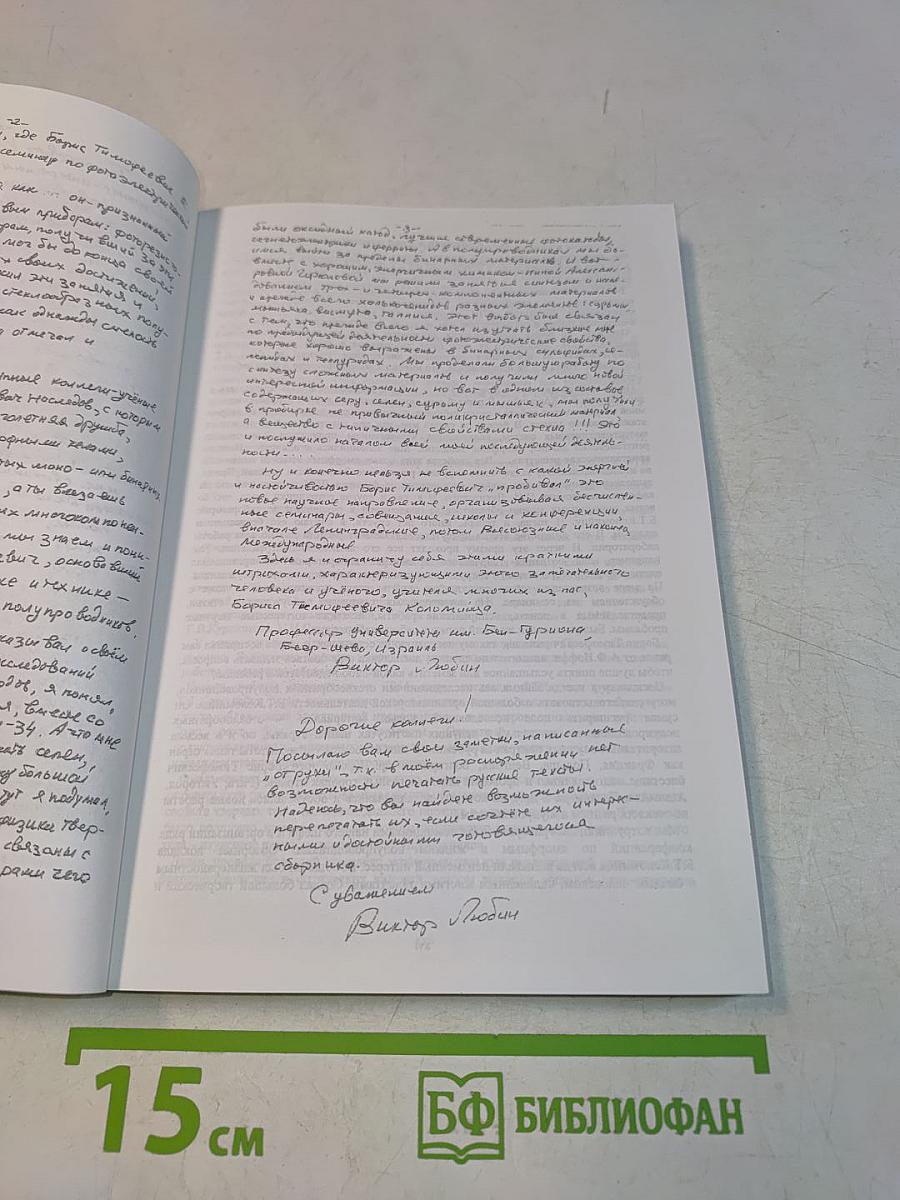 -2-
, где Борис Тимофеевич
семинар по фотоэлектрическим
как он - признанный
вым приборам: фоторезисто-
рам, получивший за эти
мог бы до конца своей
х своих достижений,
эти занятия и
стеклообразных полу-
как однажды смелость
отмечая и
пные коллеги-учёные
вич Наследов, с которым
голетняя дружба,
фными телами,
тых моно- или бинарных
, а ты влезаешь
их многокомпонен-
мы знаем и пони-
евич, основавший
ке и технике -
полупроводников.
казывал о своём
сследований
дов, я понял,
я, вместе со
-34. А что мне
чать селен,
му большой
тут я подумал,
физика твёр-
связаны с
рами чего
-3-
были оксидный катод, лучшие современные фотокатоды,
сегнетоэлектрики и ферриты. А в полупроводниках мы бо-
имся выйти за пределы бинарных материалов. И вот
вместе с хорошим, энергичным химиком - Ниной Александ-
ровной Горюновой мы решили заняться синтезом и иссле-
дованием трёх- и четырёх-компонентных материалов
и прежде всего халькогенидов разных элементов: сурьмы,
мышьяка, висмута, таллия. Этот выбор был связан
с тем, что прежде всего я хотел изучать близкие мне
по предыдущей деятельности фотоэлектрические свойства,
которые хорошо выражены в бинарных сульфидах, се-
ленидах и теллуридах. Мы проделали большую работу по
синтезу сложных материалов и получили много новой
интересной информации, но вот в одном из составов
содержащих серу, селен, сурьму и мышьяк, мы получили
в пробирке не привычный поликристаллический материал
а вещество с типичными свойствами стекла!!! Это
и послужило началом всей моей последующей деятель-
ности....
Ну и конечно нельзя не вспомнить с какой энергией
и настойчивостью Борис Тимофеевич „пробивал" это
новое научное направление, организовывая бесчислен-
ные семинары, совещания, школы и конференции,
вначале Ленинградские, потом Всесоюзные и наконец
Международные.
Здесь я и ограничу себя этими краткими
штрихами, характеризующими этого замечательного
человека и учёного, учителя многих из нас,
Бориса Тимофеевича Коломийца.
Профессор Университета им. Бен-Гуриона,
Беэр-Шева, Израиль
Виктор Любин
Дорогие коллеги!
Посылаю вам свои заметки, написанные
„от руки", т.к. в моём распоряжении нет
возможности печатать русские тексты.
Надеюсь, что вы найдёте возможность
перепечатать их, если сочтёте их интерес-
ными и достойными готовящегося
сборника.
С уважением
Виктор Любин
15 см
БФ БИБЛИОФАН